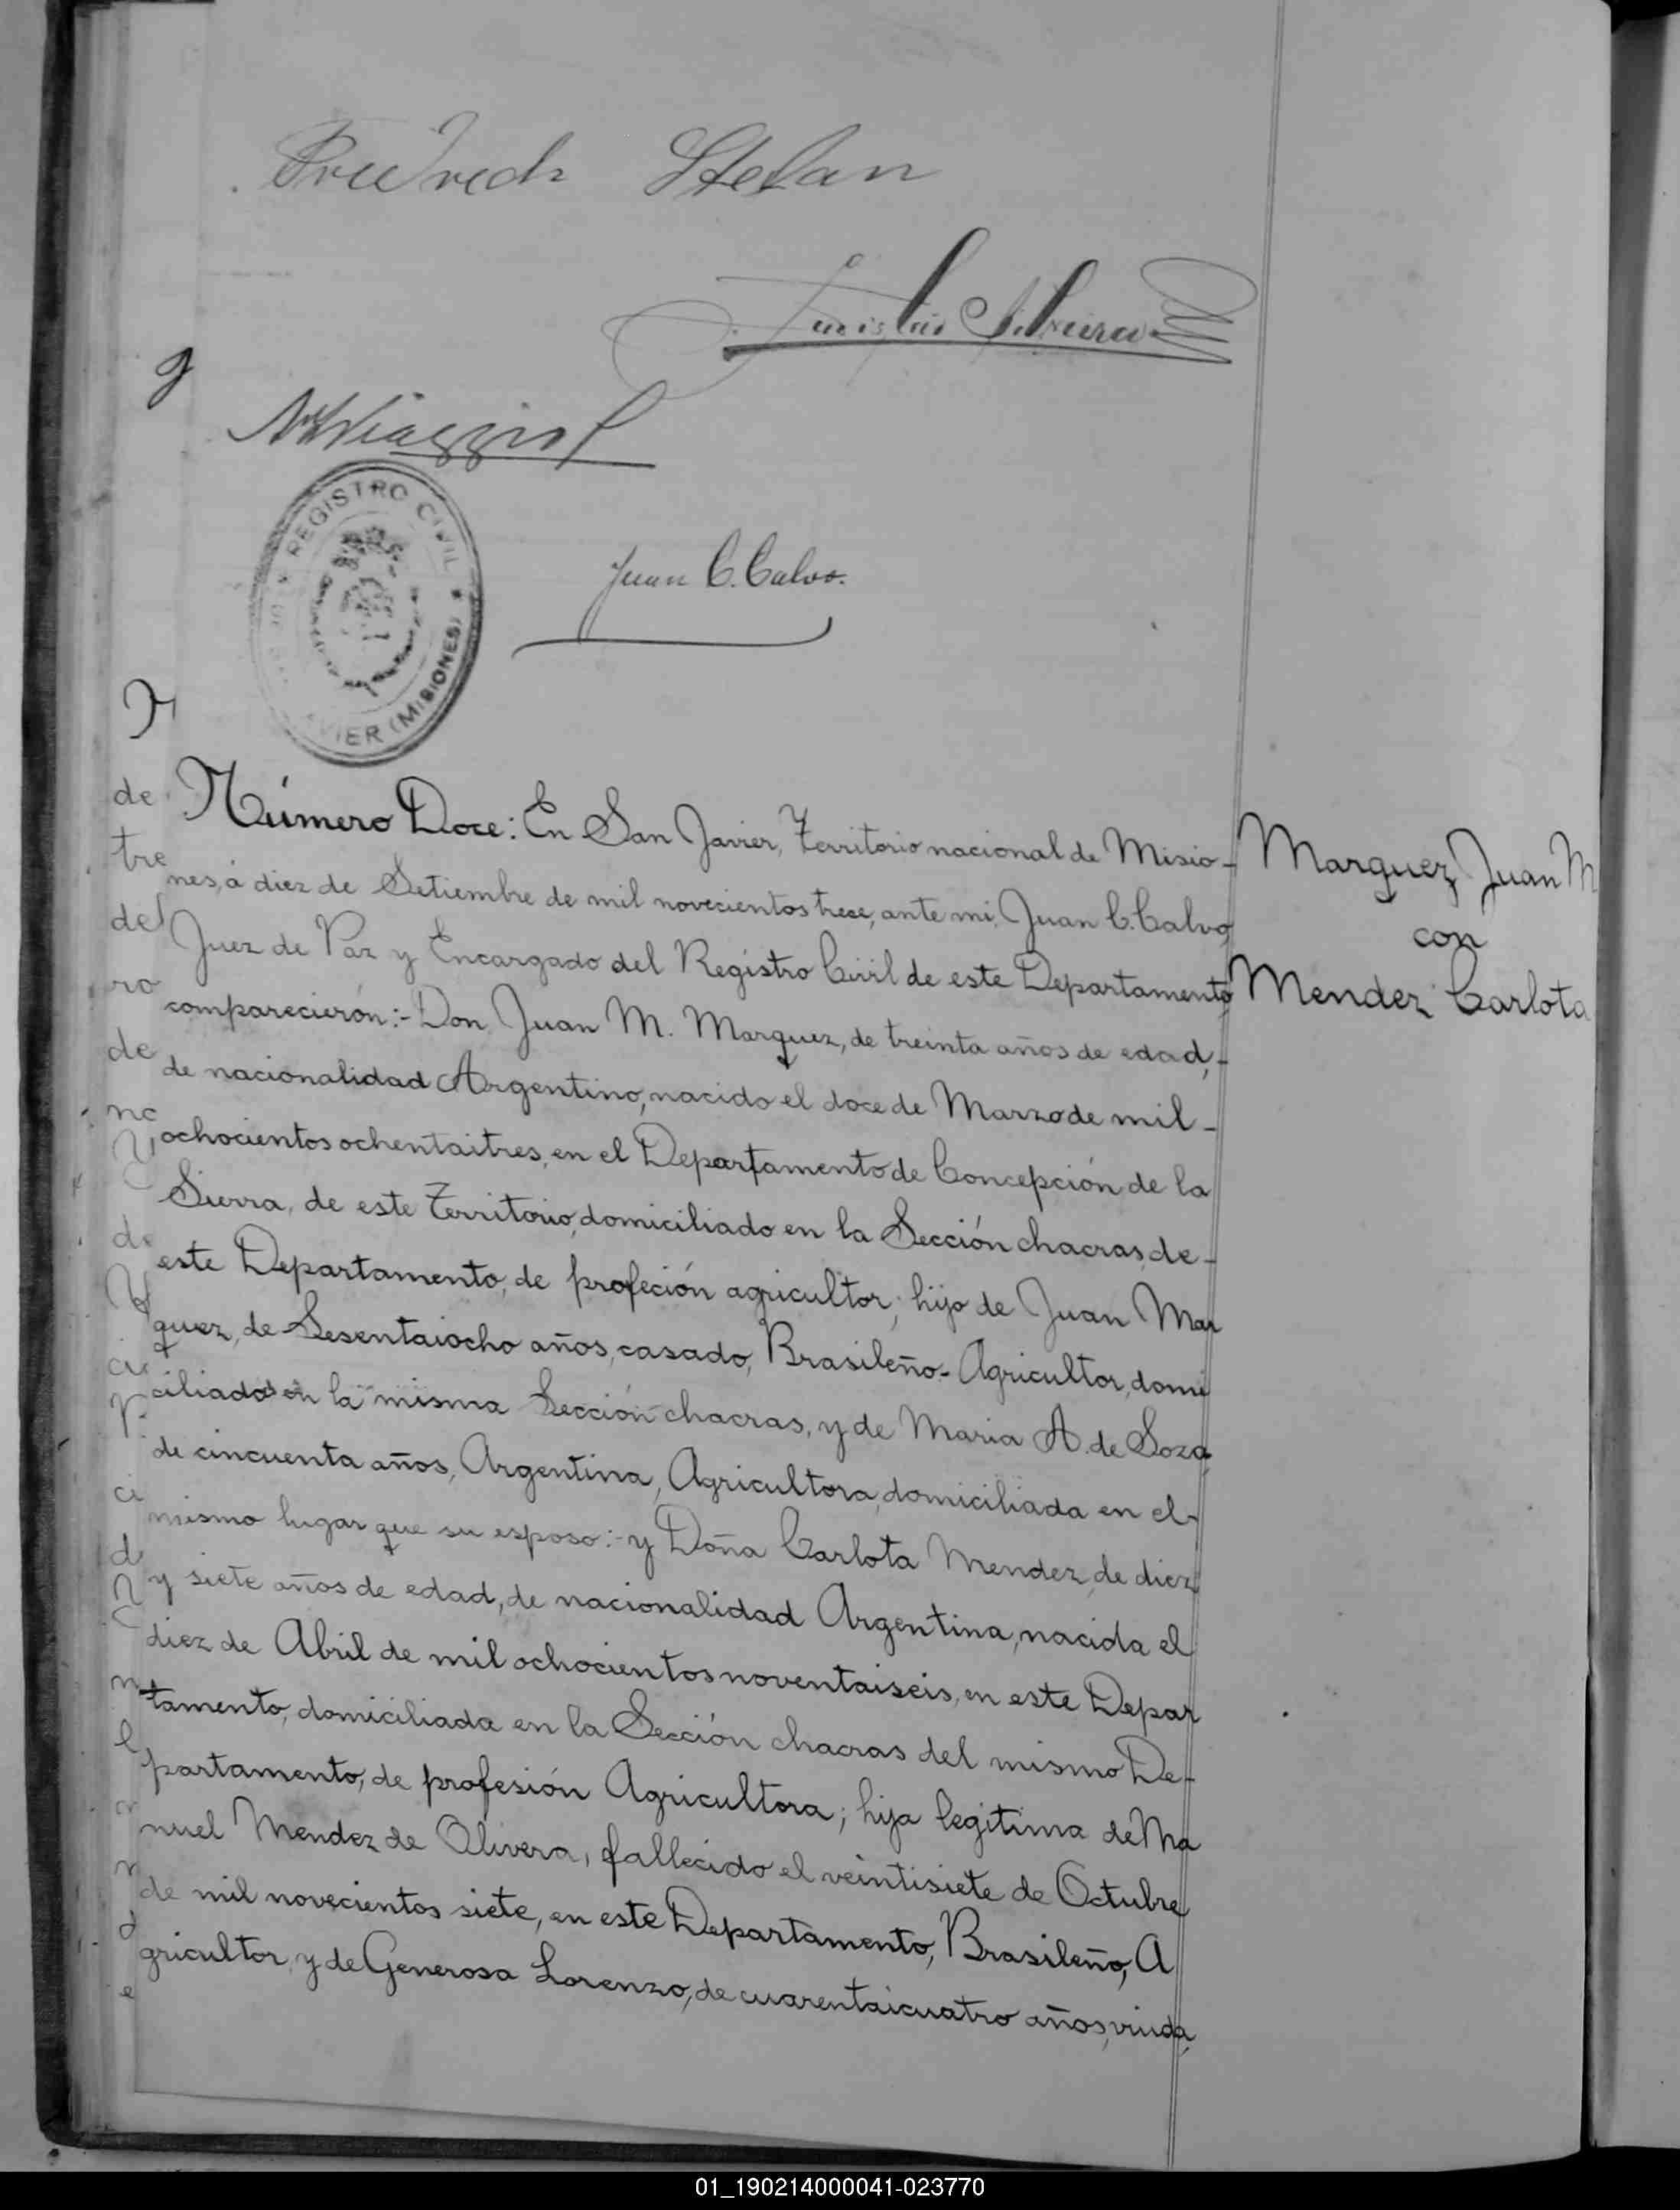 Stefan
Juan C. Calvo.
REGISTRO CIVIL
VIER (MISIONES)
Número Doce: En San Javier, Territorio nacional de Misio-
nes, á diez de Setiembre de mil novecientos trece, ante mi, Juan C. Calvo,
Juez de Paz y Encargado del Registro Civil de este Departamento,
comparecierón:- Don Juan M. Marquez, de treinta años de edad,-
de nacionalidad Argentino, nacido el doce de Marzo de mil-
ochocientos ochentaitres, en el Departamento de Concepción de la
Sierra, de este Territorio, domiciliado en la Sección chacras, de-
este Departamento, de profeción agricultor; hijo de Juan Mar
quez, de Sesentaiocho años, casado, Brasileño- Agricultor, domi
ciliado en la misma Sección chacras, y de Maria A. de Soza,
de cincuenta años, Argentina, Agricultora, domiciliada en el-
mismo lugar que su esposo:- y Doña Carlota Mendez, de diez
y siete años de edad, de nacionalidad Argentina, nacida el
diez de Abril de mil ochocientos noventaiseis, en este Depar
tamento, domiciliada en la Sección chacras del mismo De-
partamento, de profesión Agricultora; hija legitima de Ma
nuel Mendez de Olivera, fallecido el veintisiete de Octubre
de mil novecientos siete, en este Departamento, Brasileño, A
gricultor, y de Generosa Lorenzo, de cuarentaicuatro años, viuda,
Marquez, Juan M
con
Mendez Carlota
01_190214000041-023770